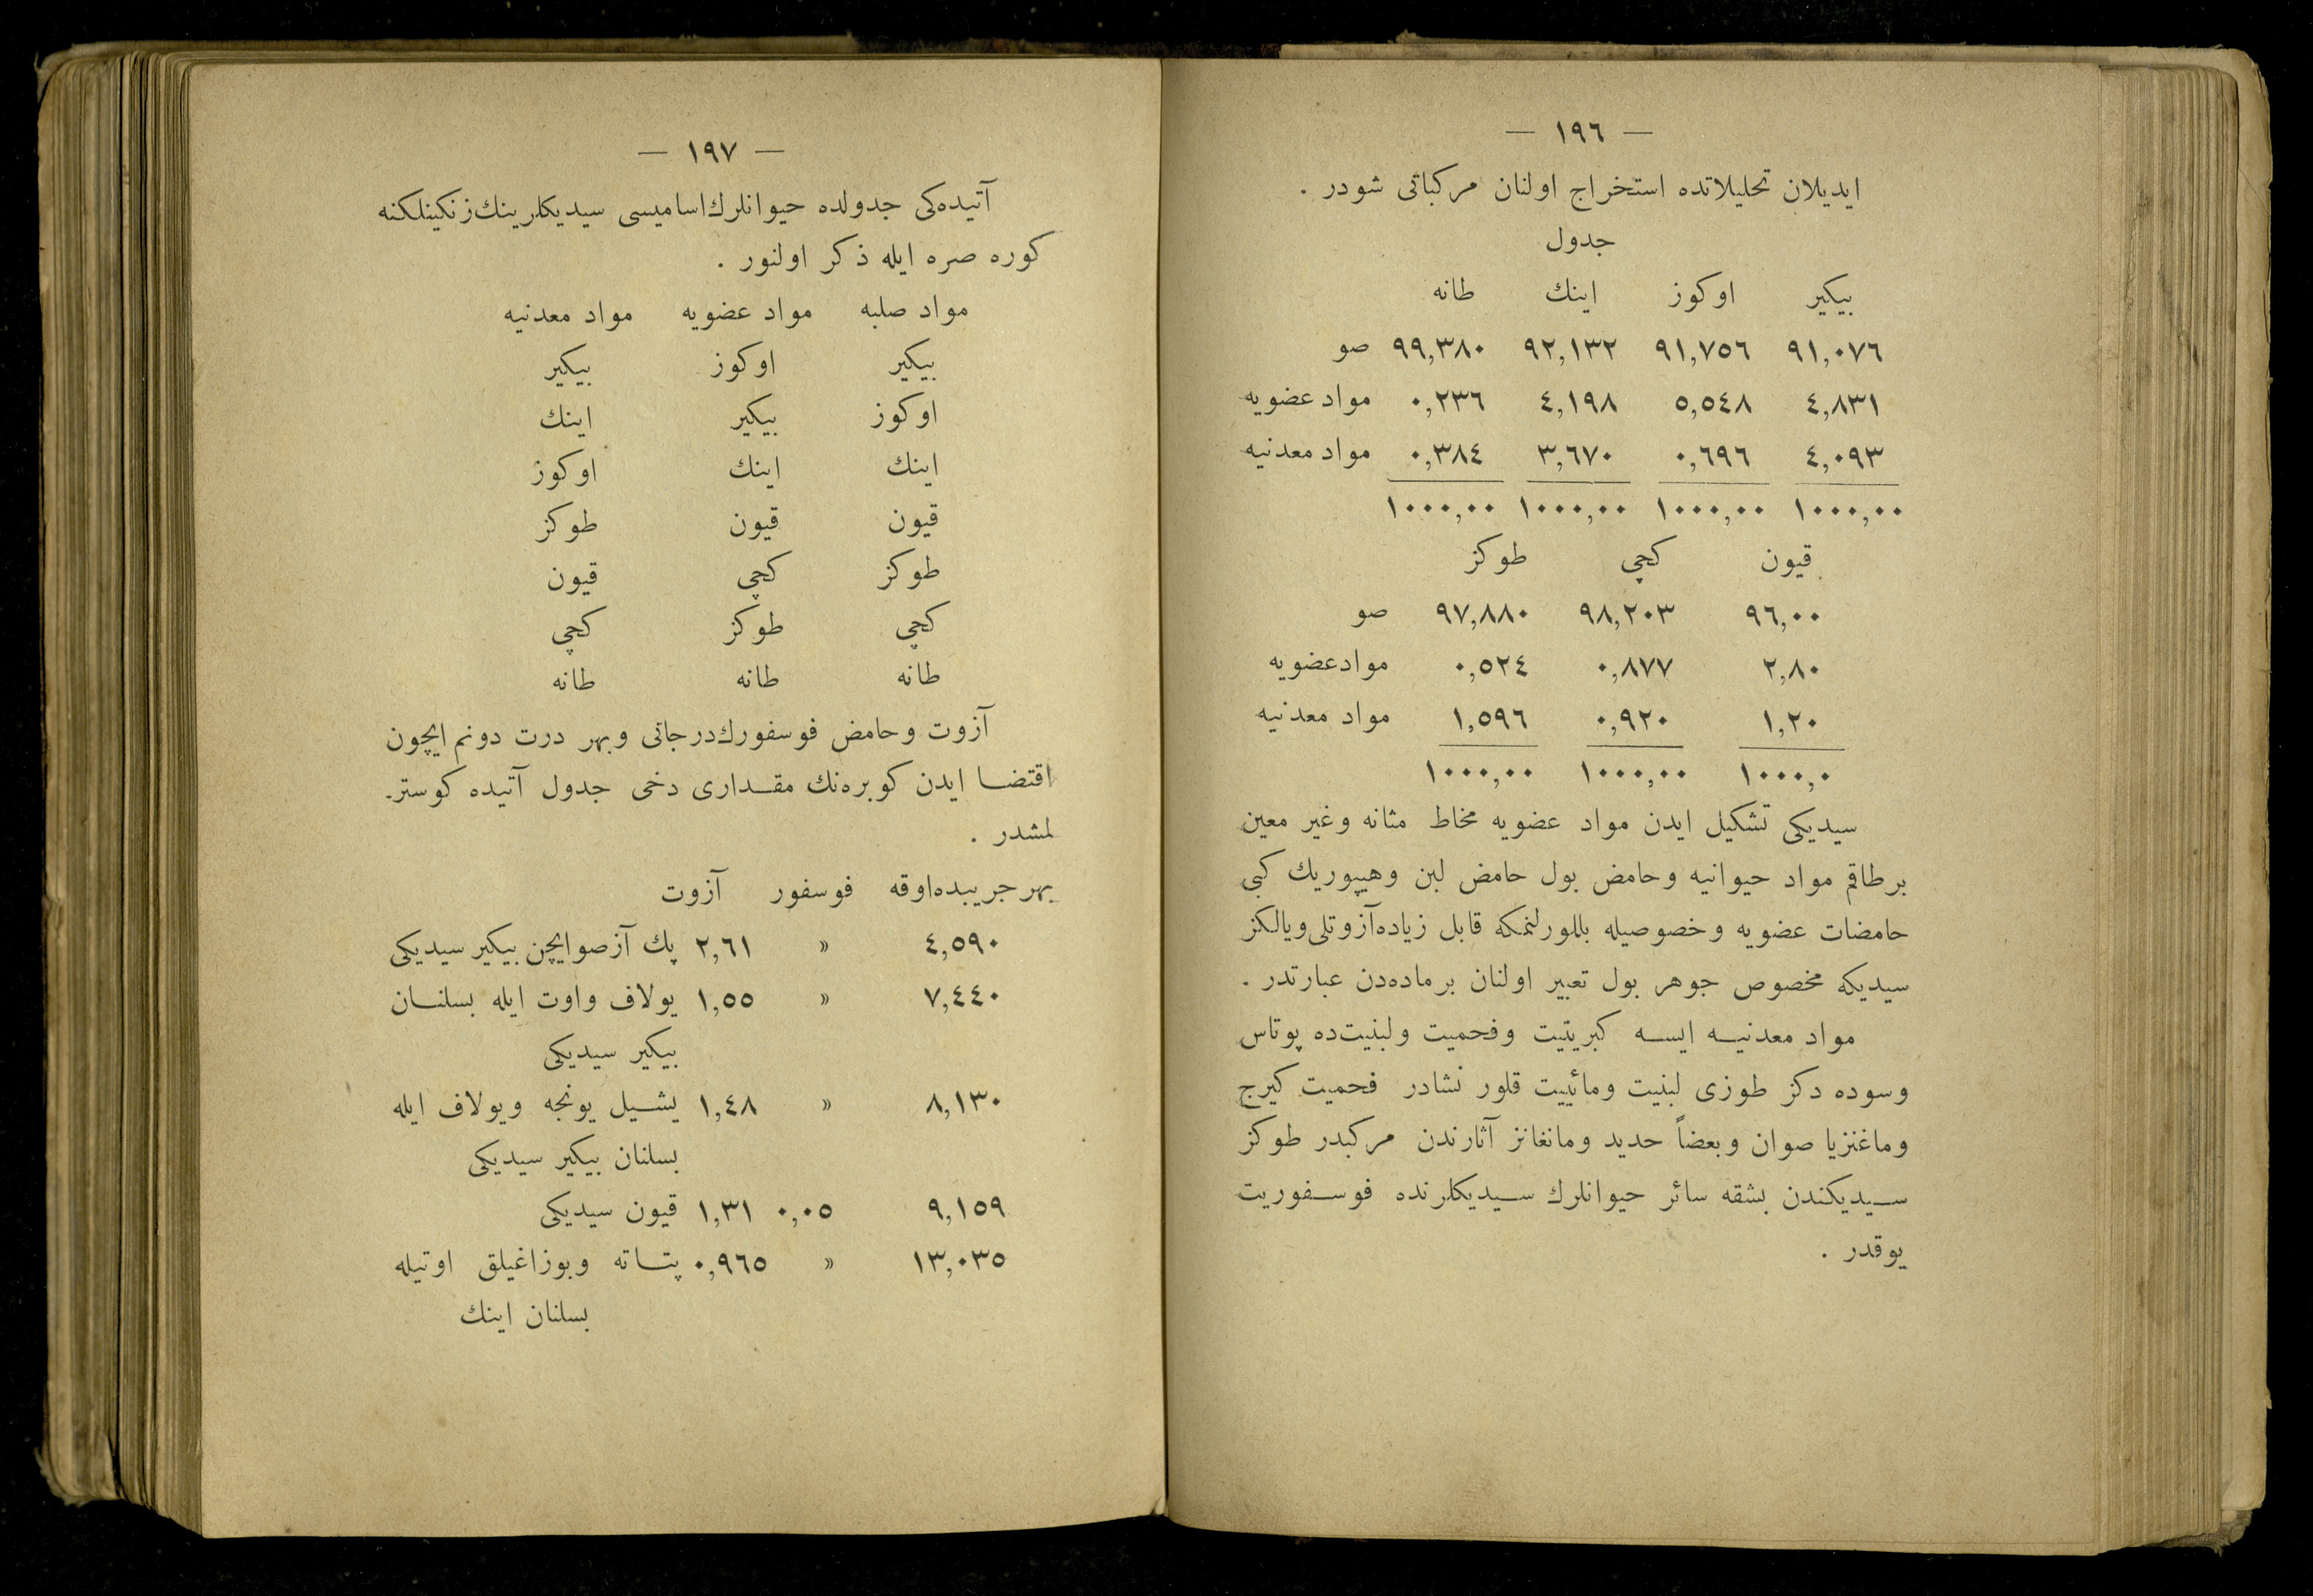 — ١٩٦ —
ايديلان تحليلاتده استخراج اولنان مركباتى شودر .
جدول
بيكير اوكوز اينك طانه
٩١,٠٧٦ ٩١,٧٥٦ ٩٢,١٣٢ ٩٩,٣٨٠ صو
٤,٨٣١ ٥,٥٤٨ ٤,١٩٨ ٠,٢٣٦ مواد عضويه
٤,٠٩٣ ٠,٦٩٦ ٣,٦٧٠ ٠,٣٨٤ مواد معدنيه
١٠٠٠,٠٠ ١٠٠٠,٠٠ ١٠٠٠,٠٠ ١٠٠٠,٠٠
قيون كچى طوكز
٩٦,٠٠ ٩٨,٢٠٣ ٩٧,٨٨٠ صو
٢,٨٠ ٠,٨٧٧ ٠,٥٢٤ مواد عضويه
١,٢٠ ٠,٩٢٠ ١,٥٩٦ مواد معدنيه
١٠٠٠,٠ ١٠٠٠,٠٠ ١٠٠٠,٠٠
سيديكى تشكيل ايدن مواد عضويه مخاط مثانه وغير معين
برطاقم مواد حيوانيه وحامض بول حامض لبن وهيپوريك كبى
حامضات عضويه وخصوصيله بللورلنمكه قابل زياده آزوتلى ويالكز
سيديكه مخصوص جوهر بول تعبير اولنان برماده‌دن عبارتدر .
مواد معدنيه ايسه كبريتيت وفحميت ولبنيت‌ده پوتاس
وسوده دكز طوزى لبنيت ومائييت قلور نشادر فحميت كيرج
وماغنزيا صوان وبعضاً حديد ومانغانز آثارندن مركبدر طوكز
سيديكندن بشقه سائر حيوانلرك سيديكلرنده فوسفوريت
يوقدر .
— ١٩٧ —
آتيده‌كى جدولده حيوانلرك اساميسى سيديكلرينك زنكينلكنه
كوره صره ايله ذكر اولنور .
مواد صلبه مواد عضويه مواد معدنيه
بيكير اوكوز بيكير
اوكوز بيكير اينك
اينك اينك اوكوز
قيون قيون طوكز
طوكز كچى قيون
كچى طوكز كچى
طانه طانه طانه
آزوت وحامض فوسفورك درجاتى وبهر درت دونم ايچون
اقتضا ايدن كوبره‌نك مقدارى دخى جدول آتيده كوستر-
لمشدر .
بهر جريبده اوقه فوسفور آزوت
٤,٥٩٠ » ٢,٦١ پك آز صو ايچن بيكير سيديكى
٧,٤٤٠ » ١,٥٥ يولاف واوت ايله بسلنان
بيكير سيديكى
٨,١٣٠ » ١,٤٨ يشيل يونجه ويولاف ايله
بسلنان بيكير سيديكى
٩,١٥٩ ٠,٠٥ ١,٣١ قيون سيديكى
١٣,٠٣٥ » ٠,٩٦٥ پتاته وبوزاغيلق اوتيله
بسلنان اينك